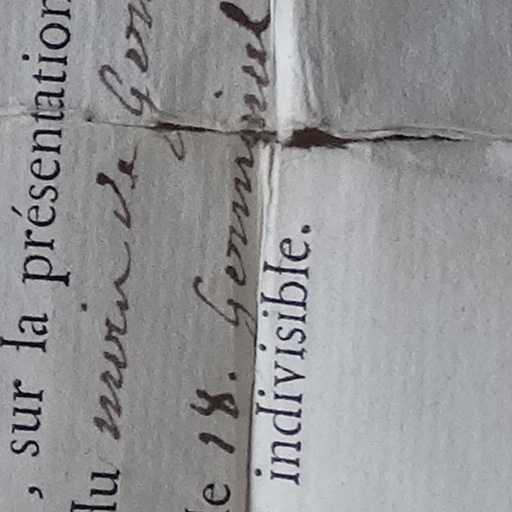 , sur la présentation
du
le 18. Germinal
indivisible.